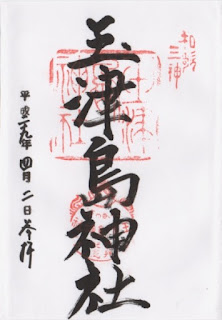 和歌
三神
玉津島神社
平成二十九年四月二日参拝